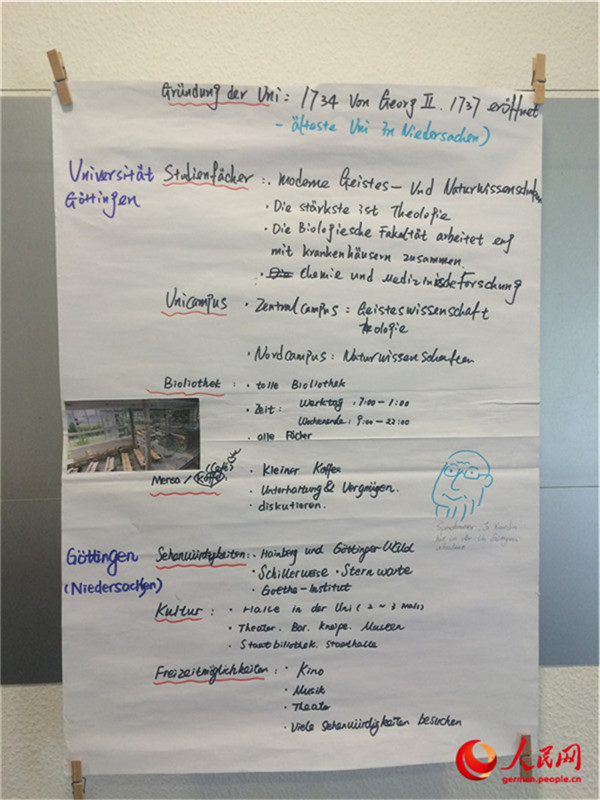 Gründung der Uni: 1734 von Georg II. 1737 eröffnet
- älteste Uni in Niedersachen)
Universität
Göttingen
Studienfächer: · moderne Geistes- und Naturwissenschaften
· Die stärkste ist Theologie
· Die Biologiesche Fakultät arbeitet eng
mit krankenhäusern zusammen.
· Chemie und Medizinische Forschung
Unicampus · Zentralcampus: Geisteswissenschaft
Teologie
· Nordcampus: Naturwissenschaften
Bioliothek: · tolle Bioliothek
· Zeit: Werktag: 7:00-1:00
Wochenende: 9:00-22:00
· alle Fächer
Mensa / Koffe (Café) · Kleiner Koffee
· Unterhaltung & Vergnügen.
· diskutieren.
Göttingen
(Niedersachen)
Sehenwürdigkeiten: · Hainberg und Göttinger Wald
· Schillerwiese · Sternwarte
· Goethe-Institut
Kultur: · in der Uni (2~3 mals)
· Theater. Bar. kneipe. Museen
· Staatbiliothek. stadthalle
Freizeitmöglichkeiten: · Kino
· Musik
· Theater
· Viele Sehenwürdigkeiten besuchen
人民网
german.people.cn